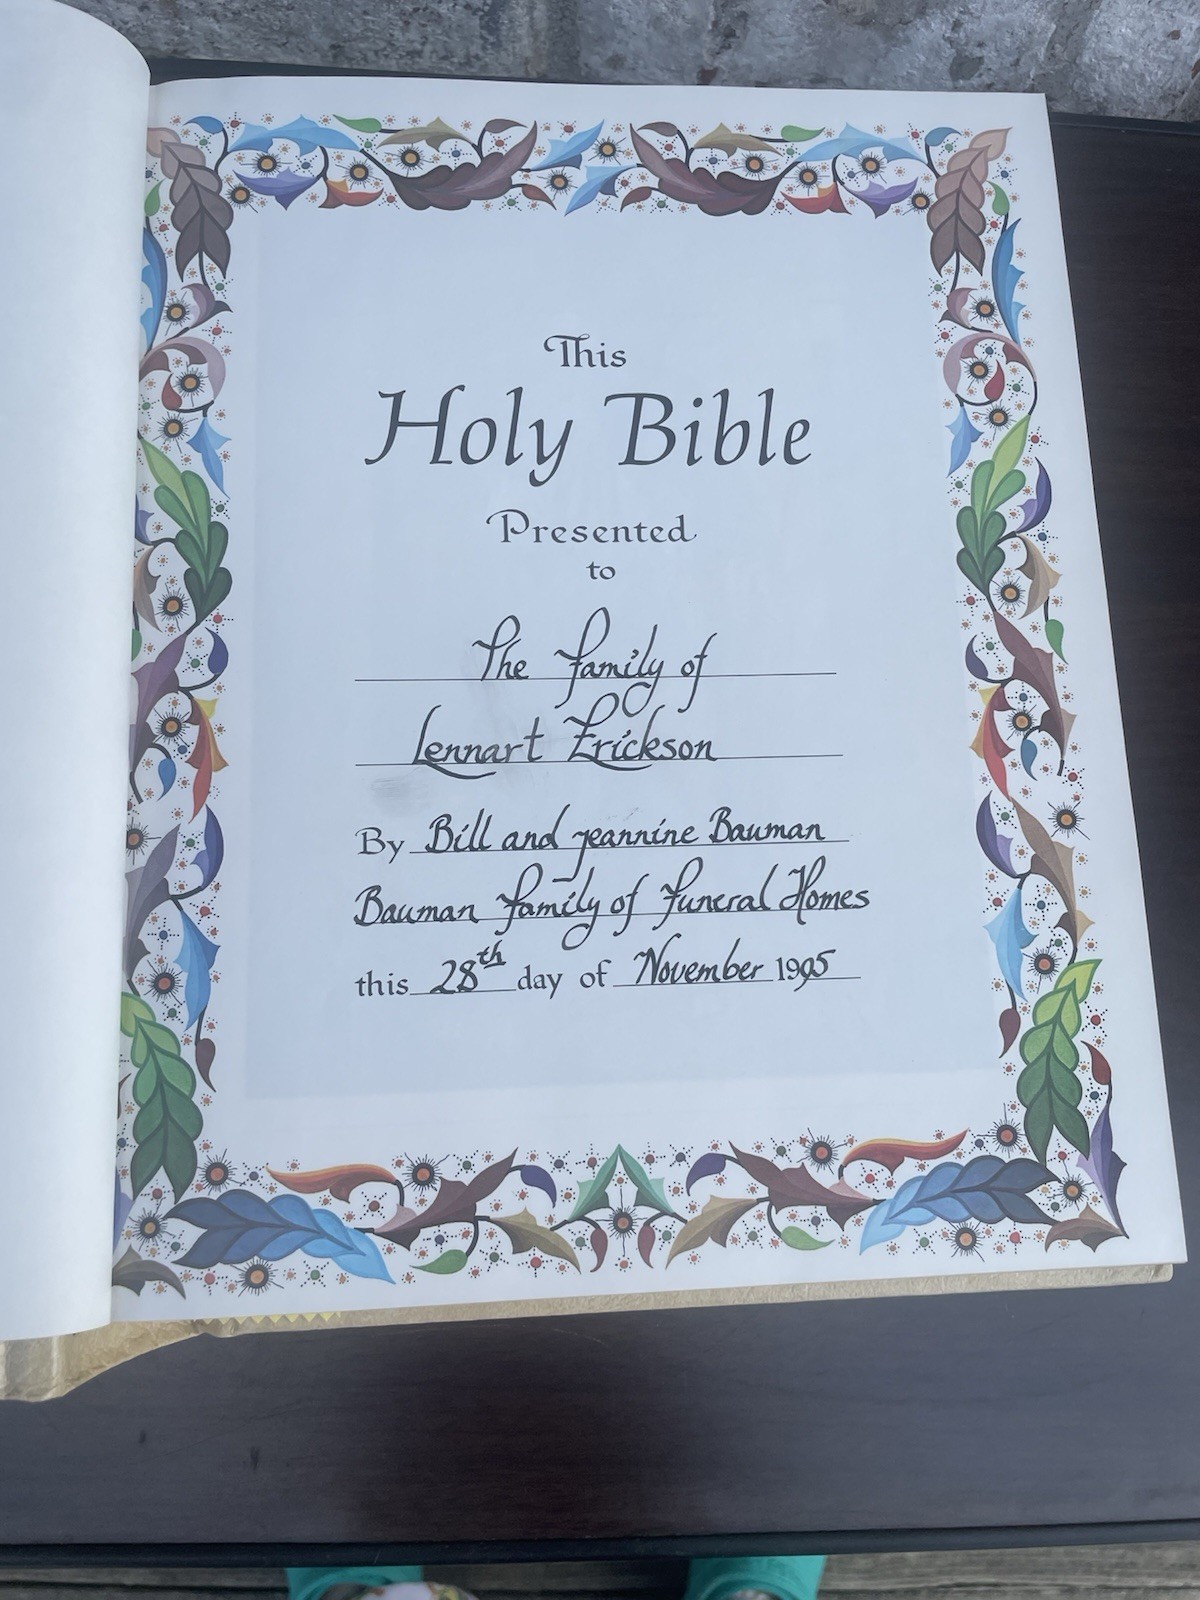 This
Holy Bible
Presented
to
The family of
Lennart Erickson
By Bill and Jeannine Bauman
Bauman Family of Funeral Homes
this 28th day of November 1995